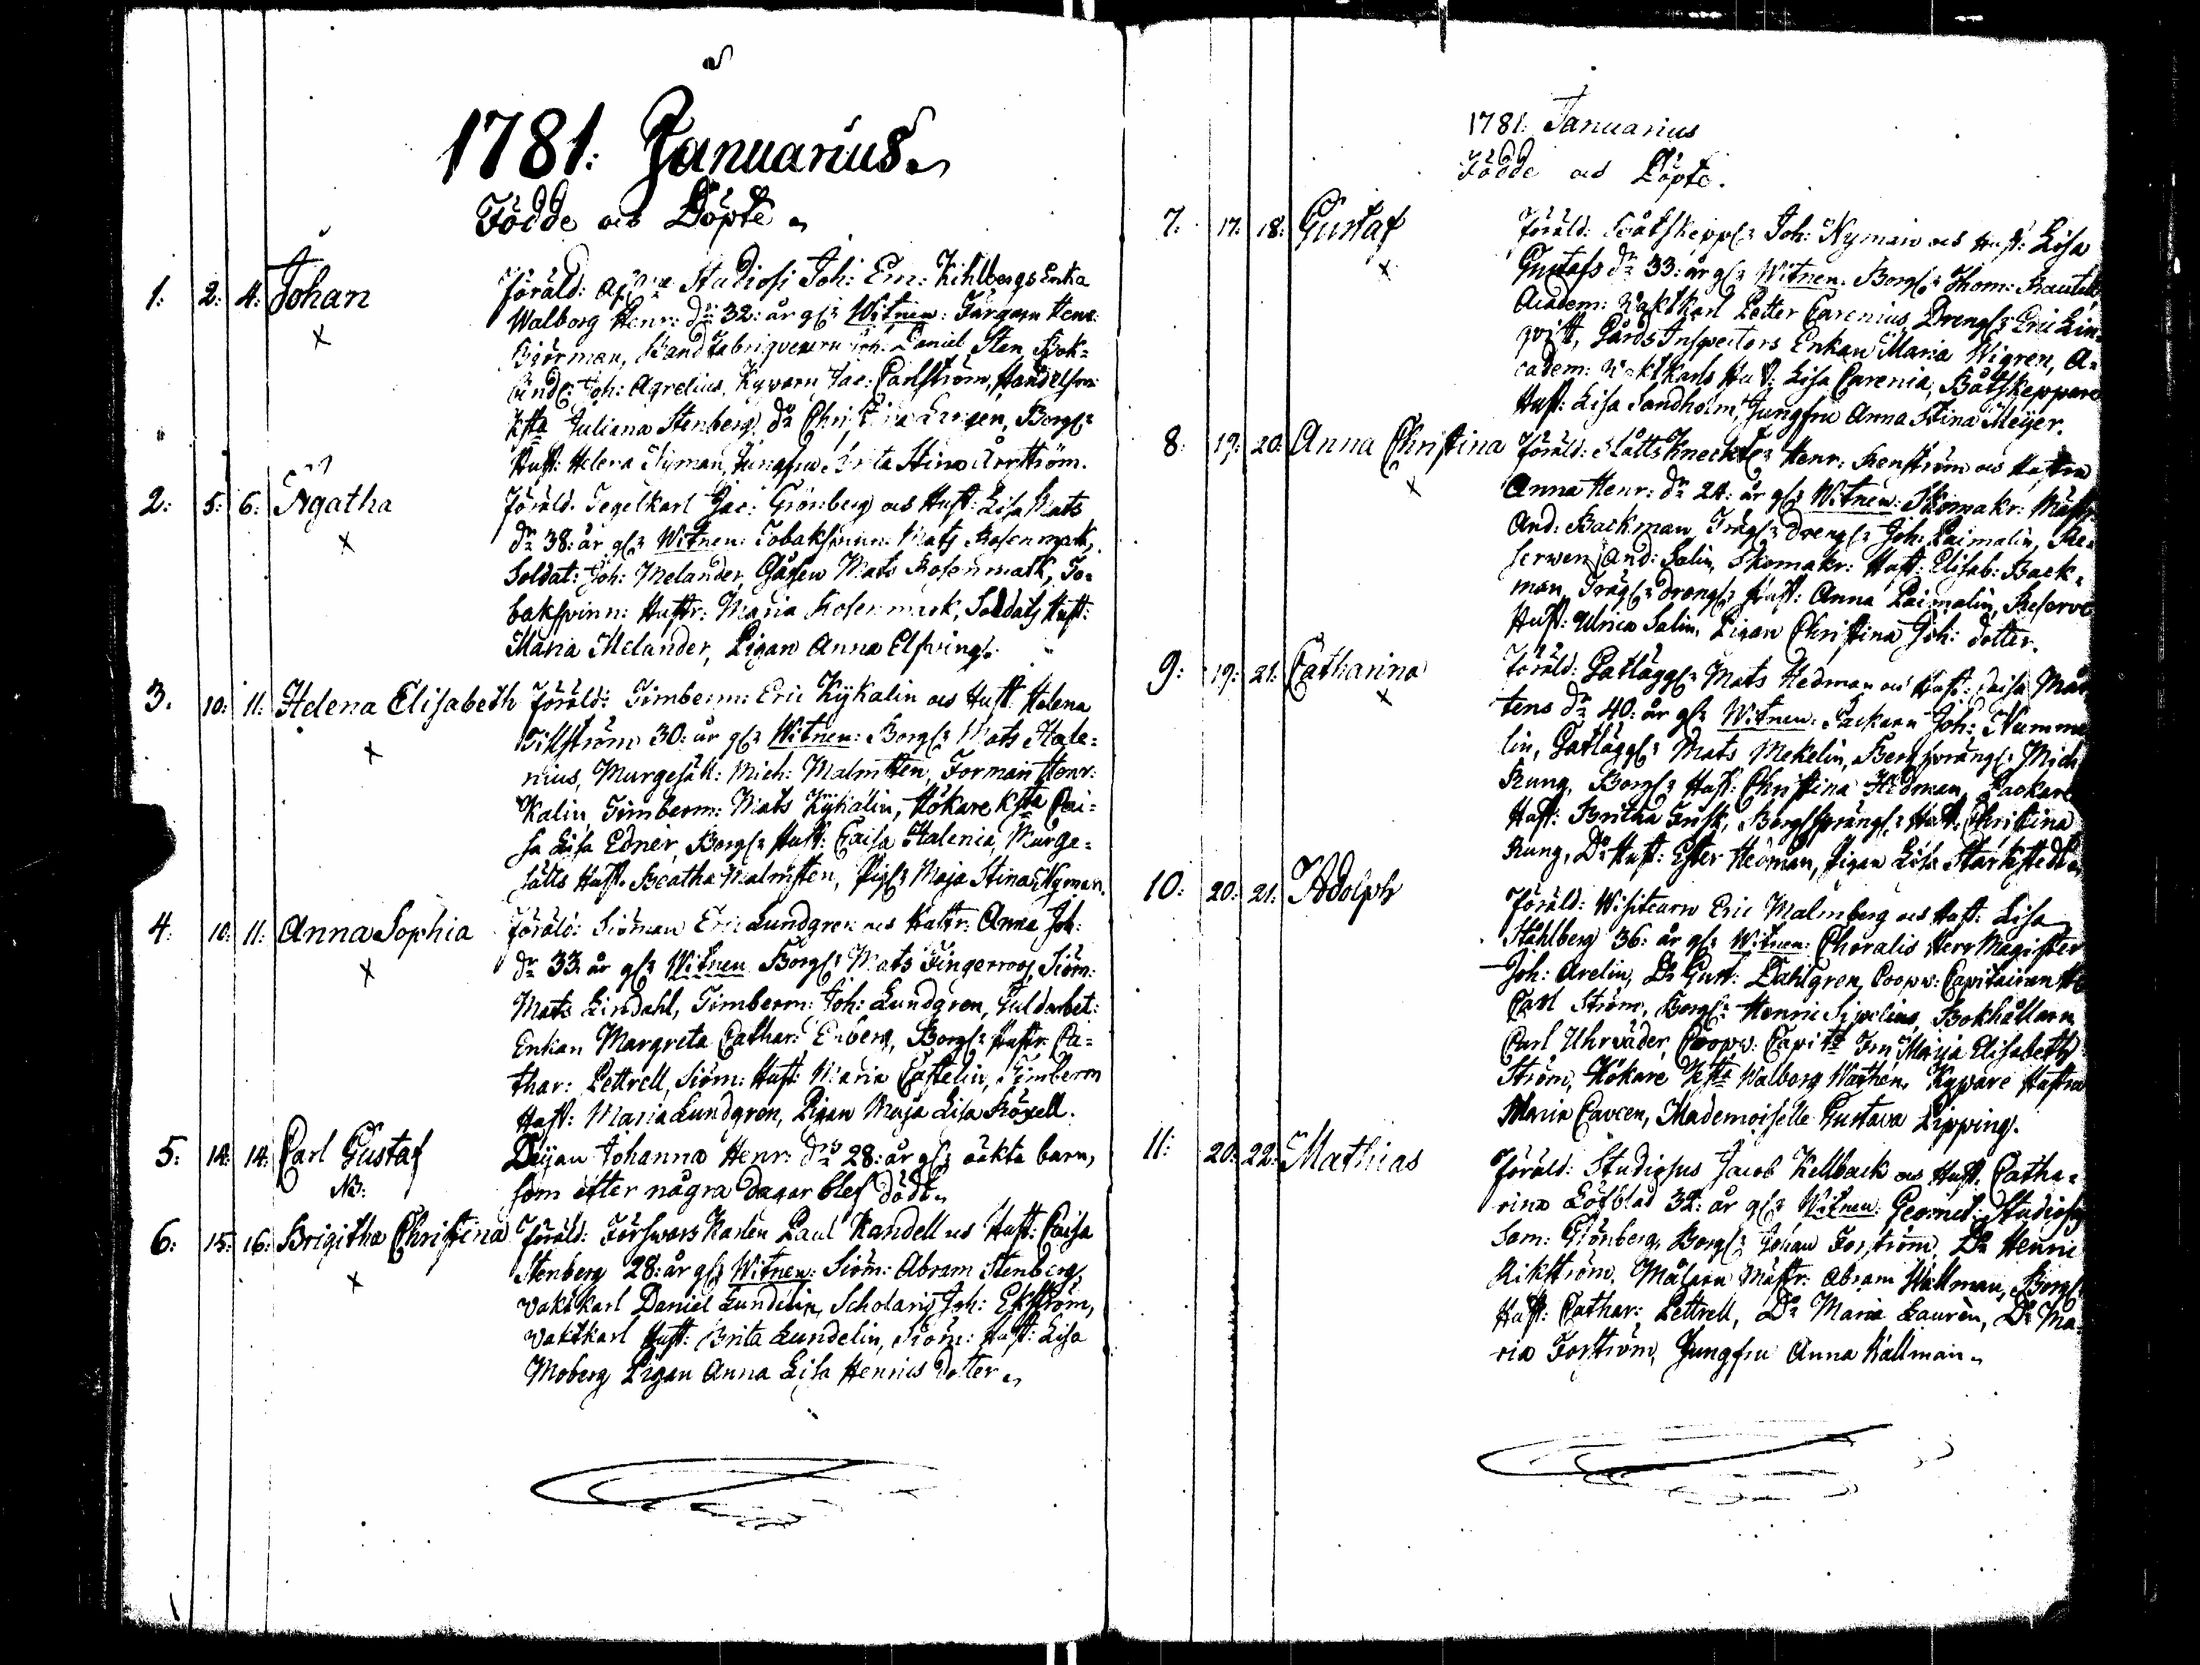 1781: Januarius.
Födde och Döpte.
1: 2: 4: Johan
Föräld: Studiosi Joh: Em: Kihlbergs Enka
Walborg Henr: dr 32: år gl: Witnen: Färgarn Henr:
Biörman, Bandfabriqueurn Joh: Daniel Sten, Bok=
bind: Joh: Agrelius, Kyparn Jac: Carlström, Handelsm:
Ksta Juliana Stenberg, do Christina Borgs:
Hust: Helena Nyman, Jungfru Brita Stina
2: 5: 6: Agatha
Föräld: Tegelkarl Jac: Grönberg och Hust: Lisa Mats
dr 38: år gl: Witnen: Tobakspinn: Mats Rosenmark,
Soldat: Joh: Melander, Gossen Mats Rosenmark, To=
bakspinn: Hustr: Maria Rosenmark, Soldats Hust:
Maria Melander, Pigan Anna Elfving.
3. 10: 11: Helena Elisabeth
Föräld: Timberm: Eric Kykalin och Hust: Helena
Tillström 30: år gl: Witnen: Borgs: Mats Hale=
nius, Murgesäll: Mich: Malmsten, Forman Henr:
Kalin, Timberm: Mats Kykalin, Hökare Ksta Cai=
sa Lisa Edner, Borgs: Hust: Caisa Halenia, Murge=
sälls Hust: Beatha Malmsten, Pigs: Maja Stina Nyman.
4: 10: 11: Anna Sophia
Föräld: Siöman Eric Lundgren och Hustr: Anna Joh:
dr 33 år gl: Witnen Borgs: Mats Fingerroos, Siöm:
Mats Lindahl, Timberm: Joh: Lundgren, Guldarbet:
Enkan Margreta Cathar: Enberg, Borgs: Hustr: Ca=
thar: Pettrell, Siöm: Hust: Maria Castelin, Timberm
Hust: Maria Lundgren, Pigan Maja Lisa Roxell.
5: 14: 14: Carl Gustaf
NB:
Deijan Johanna Henr: dr 28: år gl: oäkta barn,
som efter några dagar blef dödt.
6: 15: 16: Brigitha Christina
Föräld: Försvars Karlen Paul Kandell och Hust: Caisa
Stenberg 28: år gl: Witnen: Siöm: Abram Stenberg,
Vaktkarl Daniel Lundelin, Scholaris Joh: Ekström,
Vaktkarl Hust: Brita Lundelin, Siöm: Hust: Lisa
Moberg Pigan Anna Lisa Henrics dotter.
1781: Januarius
Födde och Döpte.
7: 17: 18: Gustaf
Föräld: Båtskepps: Joh: Nyman och Hust: Lisa
Gustafs dr 33: år gl: Witnen: Borgs: Thom:
Academ: Vaktkarl Petter Carenius, Drengs: Eric Lin=
qvist, Gårds Inspectors Enkan Maria Wigren, A=
cadem: Vaktkarls Hust: Lisa Carenia, Båtskeppare
Hust: Lisa Sandholm, Jungfru Anna Stina Meijer.
8: 19: 20: Anna Christina
Föräld: Slåttsknecht: Henr: Renström och Hustru
Anna Henr: dr 24: år gl: Witnen: Skomakr: Mästr
And: Backman, Trägs: Drengs: Joh: Paimalin, Re=
serven And: Salin, Skomakr: Hust: Elisab: Back=
man, Trägs: Drengs: Hust: Anna Paimalin, Reserve
Hust: Ulrica Salin, Pigan Christina Joh: dotter.
9: 19: 21: Catharina
Föräld: Gatläggs: Mats Hedman och Hust: Caisa Mår
tens dr 40: år gl: Witnen: Packarn Joh: Numme
lin, Gatläggs: Mats Mekelin, Bergspräng: Mich
Rung, Borgs: Hust: Christina Hedman, Packare
Hust: Britha Frisk, Bergsprängs: Hust: Christina
Rung, Do Hust: Ester Hedman, Pigan Lisa Starkstedt.
10: 20: 21: Adolph
Föräld: Visitearn Eric Malmberg och Hust: Lisa
Ståhlberg 36: år gl: Witnen: Choralis Herr Magister
Joh: Arelin, Do Gust: Dahlgren, Coopv: Capitainen H
Carl Ström, Borgs: Henric Sipelius, Bokhållarn
Carl Uhrväder, Coopv: Capit: Fru Maija Elisabeth
Ström, Hökare Ksta Walborg Wathen, Kypare Hustru
Maria Caveen, Mademoiselle Gustava Pipping.
11: 20: 22: Mathias
Föräld: Studiosus Jacob Kellback och Hust: Catha=
rina Löfblad 32: år gl: Witnen: Geomet: Studiosus
Sam: Grönberg, Borgs: Johan Forström, Do Henric
Rikström, Målarn Mästr: Abram Hällman, Borgs:
Hust: Cathar: Pettrell, Do Maria Lauren, Do Ma=
ria Forström, Jungfru Anna Källman.